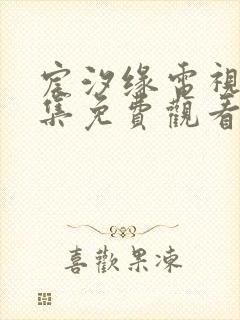 宸汐缘電視
集免費觀看
喜歡果凍